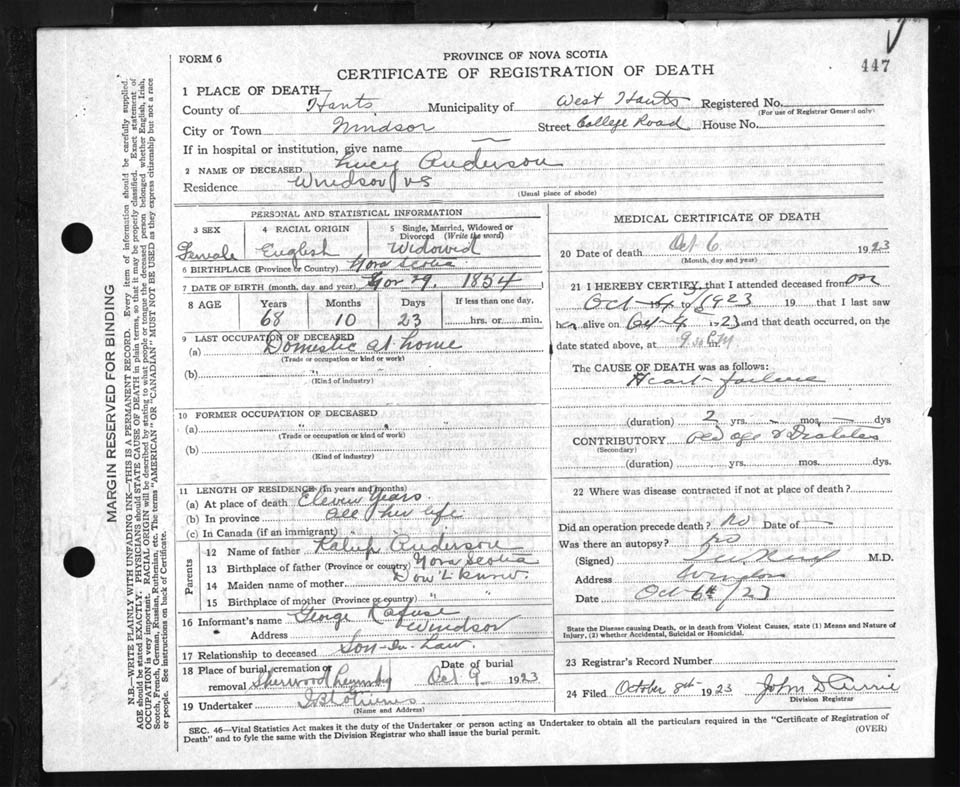 447
FORM 6
PROVINCE OF NOVA SCOTIA
CERTIFICATE OF REGISTRATION OF DEATH
1 PLACE OF DEATH
County of Hants Municipality of West Hants Registered No.
(For use of Registrar General only)
City or Town Windsor Street College Road House No.
If in hospital or institution, give name —
2 NAME OF DECEASED Lucy Anderson
Residence Windsor NS
(Usual place of abode)
PERSONAL AND STATISTICAL INFORMATION
3 SEX 4 RACIAL ORIGIN 5 Single, Married, Widowed or Divorced (Write the word)
Female English Widowed
6 BIRTHPLACE (Province or Country) Nova Scotia
7 DATE OF BIRTH (month, day and year) Nov 29, 1854
8 AGE Years Months Days If less than one day,
68 10 23 hrs. or min.
9 LAST OCCUPATION OF DECEASED
(a) Domestic at home
(Trade or occupation or kind of work)
(b)
(Kind of industry)
10 FORMER OCCUPATION OF DECEASED
(a)
(Trade or occupation or kind of work)
(b)
(Kind of industry)
11 LENGTH OF RESIDENCE (In years and months)
(a) At place of death Eleven Years.
(b) In province all her life
(c) In Canada (if an immigrant)
Parents
12 Name of father Anderson
13 Birthplace of father (Province or country) Nova Scotia
14 Maiden name of mother Don't know.
15 Birthplace of mother (Province or country) " "
16 Informant's name George Rafuse
Address Windsor
17 Relationship to deceased Son-in-Law.
18 Place of burial, cremation or removal Sherwood Date of burial Oct 9 1923
19 Undertaker
(Name and Address)
MEDICAL CERTIFICATE OF DEATH
20 Date of death Oct 6 1923
(Month, day and year)
21 I HEREBY CERTIFY, that I attended deceased from on
Oct 4 19 to 1923 19 that I last saw
her alive on Oct 4 1923 and that death occurred, on the
date stated above, at 9.30 PM
The CAUSE OF DEATH was as follows:
Heart failure
(duration) 2 yrs. mos. dys
CONTRIBUTORY Old age & Diabetes
(Secondary)
(duration) yrs. mos. dys.
22 Where was disease contracted if not at place of death?
Did an operation precede death? No Date of —
Was there an autopsy? No
(Signed) M.D.
Address Windsor
Date Oct 6th /23
State the Disease causing Death, or in death from Violent Causes, state (1) Means and Nature of
Injury, (2) whether Accidental, Suicidal or Homicidal.
23 Registrar's Record Number
24 Filed October 8th 1923 John D Currie
Division Registrar
SEC. 46—Vital Statistics Act makes it the duty of the Undertaker or person acting as Undertaker to obtain all the particulars required in the "Certificate of Registration of
Death" and to fyle the same with the Division Registrar who shall issue the burial permit.
(OVER)
MARGIN RESERVED FOR BINDING
N.B.—WRITE PLAINLY WITH UNFADING INK—THIS IS A PERMANENT RECORD. Every item of information should be carefully supplied.
AGE should be stated EXACTLY. PHYSICIANS should STATE CAUSE OF DEATH in plain terms, so that it may be properly classified. Exact statement of
OCCUPATION is very important. RACIAL ORIGIN will be described by stating to what people or tongue the deceased person belonged whether English, Irish,
Scotch, French, German, Russian, Ruthenian, etc. The terms "AMERICAN" OR "CANADIAN" MUST NOT BE USED as they express citizenship but not a race
or people. See instructions on back of Certificate.